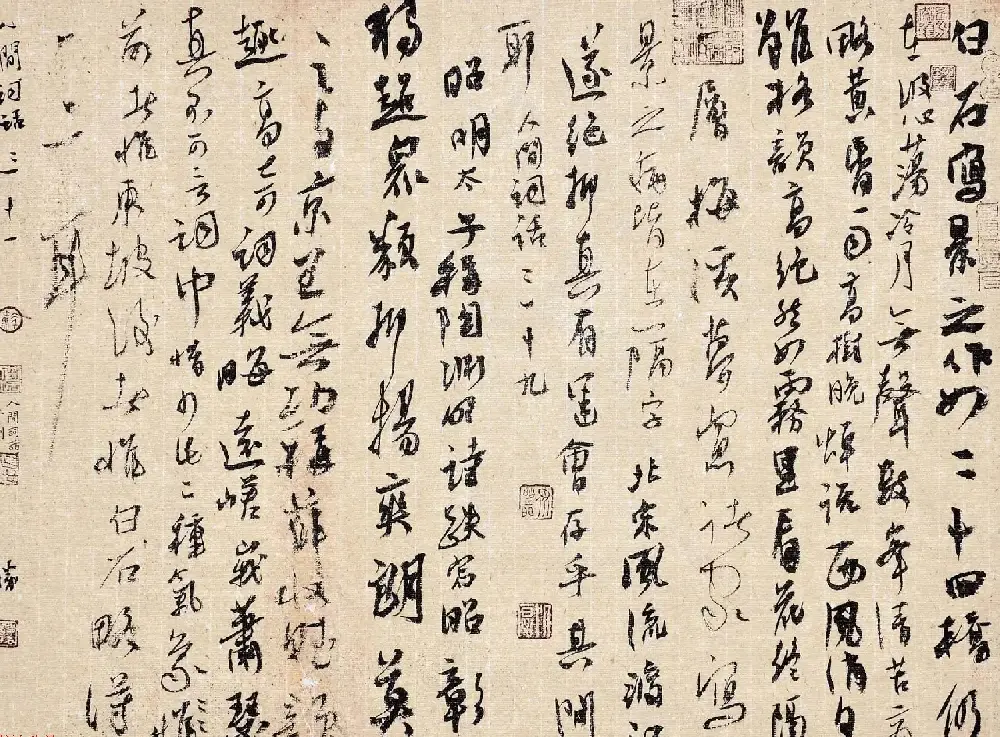 白石寫景之作如二十四橋仍
在波心蕩冷月無聲數峯清苦商
略黃昏雨高樹晚蟬說西風消息
雖格韻高絕然如霧里看花終隔
一層梅溪夢窗諸家寫
景之病皆在一隔字北宋風流渡江
遂絕抑真有運會存乎其間
耶 人間詞話 三十九
昭明太子稱陶淵明詩跌宕昭彰
獨超衆類抑揚爽朗莫
之與京王無功稱薛收賦韻
趣高奇詞義晦遠嵯峨蕭瑟
真不可言詞中惜少此二種氣象
前者惟東坡後者惟白石略得
一二耳
人間詞話 三十一